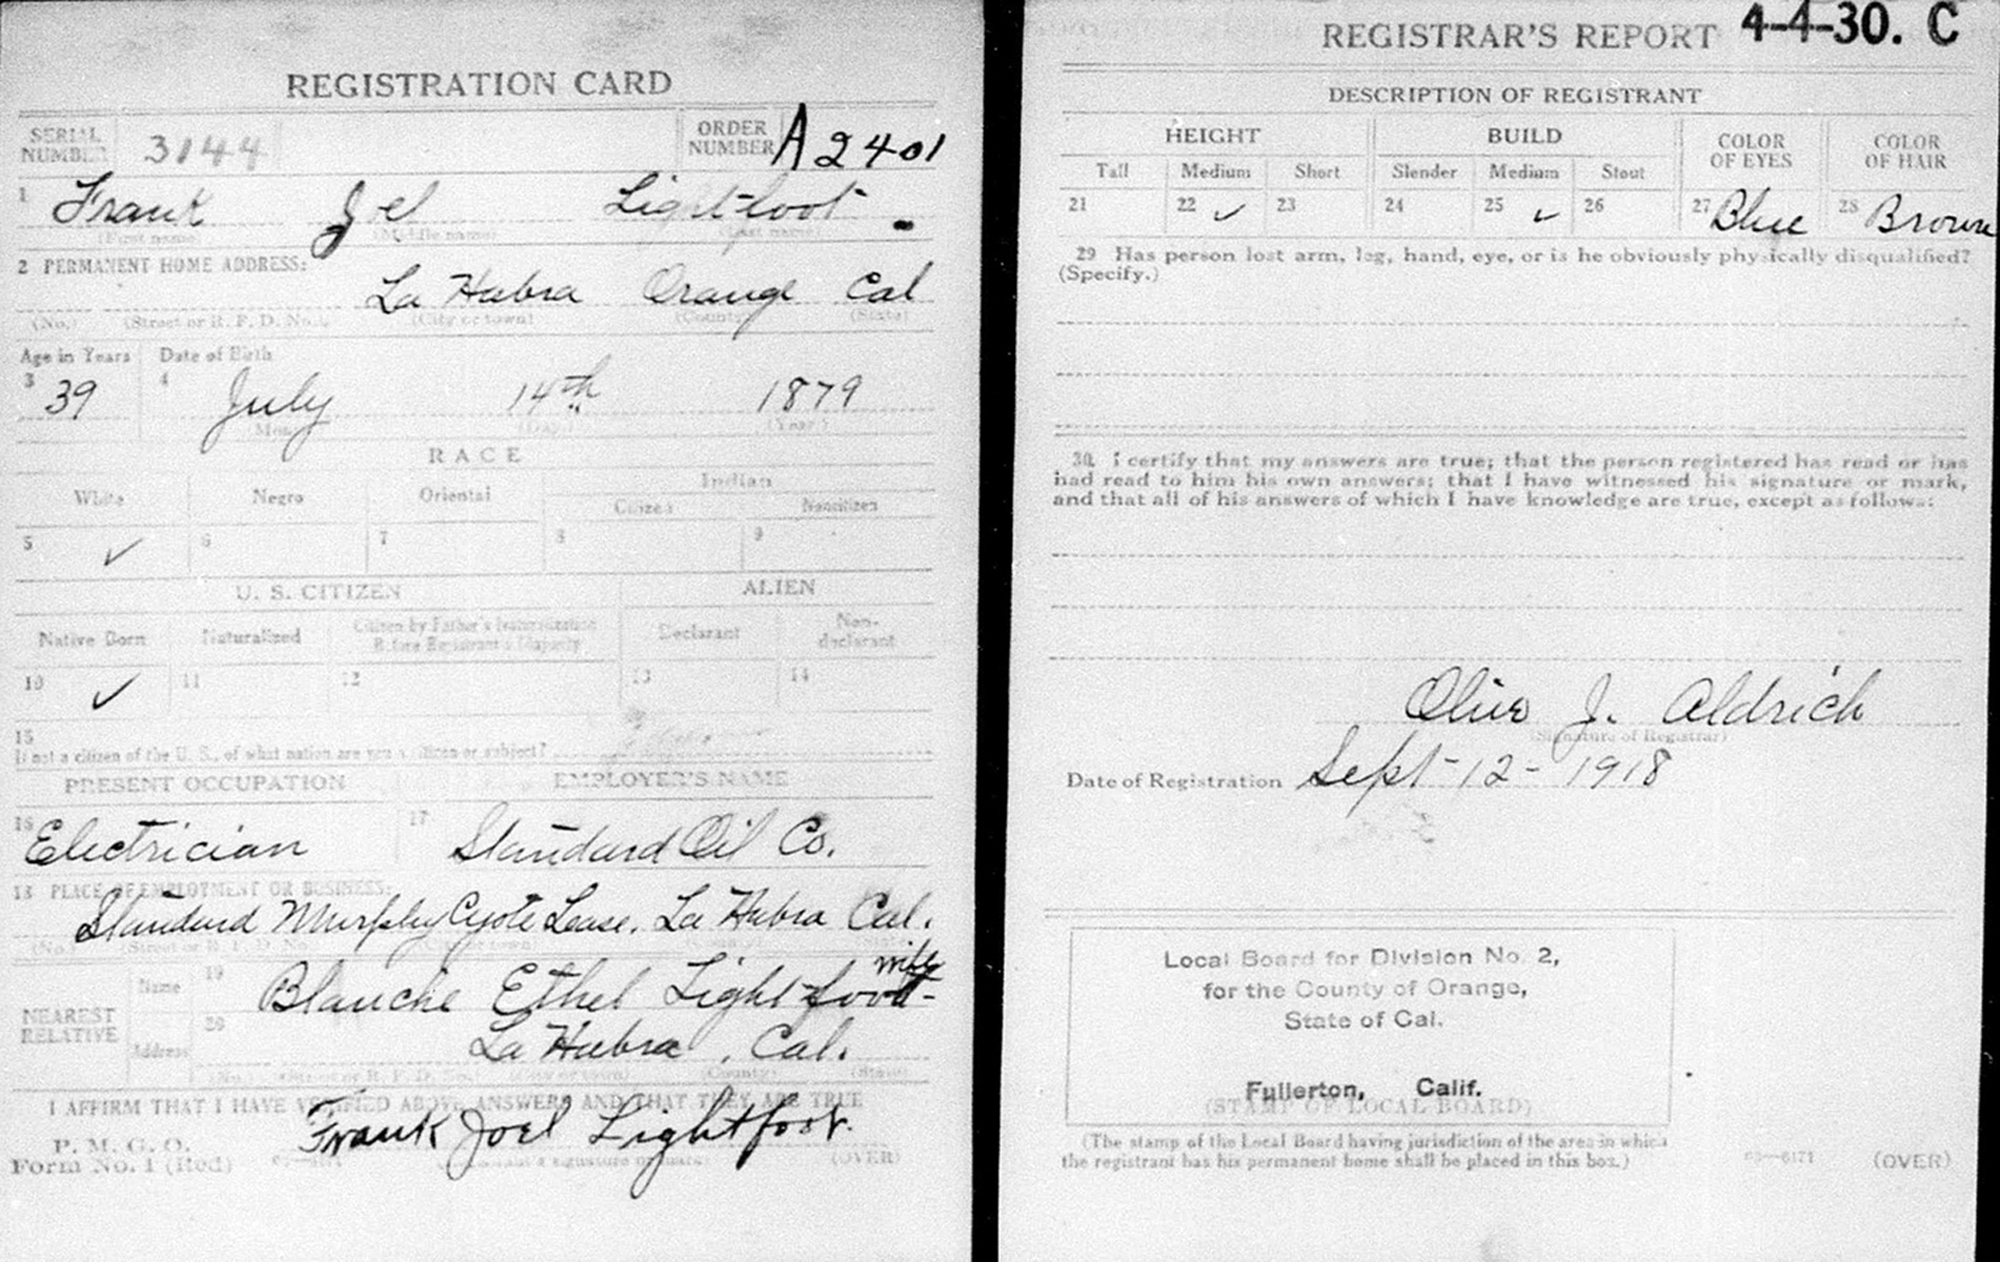 REGISTRATION CARD
SERIAL NUMBER 3144 ORDER NUMBER A 2401
1 Frank Joel Lightfoot
(First name) (Middle name) (Last name)
2 PERMANENT HOME ADDRESS:
La Habra Orange Cal
(No.) (Street or R. F. D. No.) (City or town) (County) (State)
Age in Years Date of Birth
3 39 4 July 14th 1879
(Month) (Day) (Year)
RACE
White Negro Oriental Indian
Citizen Noncitizen
5 ✓ 6 7 8 9
U. S. CITIZEN ALIEN
Native Born Naturalized Citizen by Father's Naturalization Before Registrant's Majority Declarant Non-declarant
10 ✓ 11 12 13 14
15
If not a citizen of the U. S., of what nation are you a citizen or subject?
PRESENT OCCUPATION EMPLOYER'S NAME
16 Electrician 17 Standard Oil Co.
18 PLACE OF EMPLOYMENT OR BUSINESS:
Standard Murphy Cyote Lease. La Habra Cal.
(No.) (Street or R. F. D. No.) (City or town) (County) (State)
wife
NEAREST RELATIVE Name 19 Blanche Ethel Lightfoot
Address 20 La Habra, Cal.
(No.) (Street or R. F. D. No.) (City or town) (County) (State)
I AFFIRM THAT I HAVE VERIFIED ABOVE ANSWERS AND THAT THEY ARE TRUE
P. M. G. O.
Form No. 1 (Red) Frank Joel Lightfoot.
(Registrant's signature or mark) (OVER)
REGISTRAR'S REPORT 4-4-30. C
DESCRIPTION OF REGISTRANT
HEIGHT BUILD COLOR OF EYES COLOR OF HAIR
Tall Medium Short Slender Medium Stout
21 22 ✓ 23 24 25 ✓ 26 27 Blue 28 Brown
29 Has person lost arm, leg, hand, eye, or is he obviously physically disqualified?
(Specify.)
30 I certify that my answers are true; that the person registered has read or has
had read to him his own answers; that I have witnessed his signature or mark,
and that all of his answers of which I have knowledge are true, except as follows:
Olive J. Aldrich
(Signature of Registrar)
Date of Registration Sept-12-1918
Local Board for Division No. 2,
for the County of Orange,
State of Cal.
Fullerton, Calif.
(STAMP OF LOCAL BOARD)
(The stamp of the Local Board having jurisdiction of the area in which
the registrant has his permanent home shall be placed in this box.)
03—6171 (OVER)